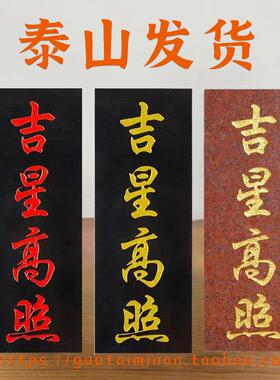 泰山发货
吉星高照
吉星高照
吉星高照
https://guotaiminan.taobao.com